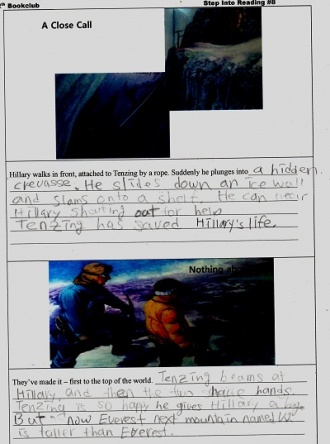 Bookclub
Step Into Reading #8
A Close Call
Hillary walks in front, attached to Tenzing by a rope. Suddenly he plunges into a hidden
crevasse. He slides down an ice wall
and slams onto a shelf. He can hear
Hillary shouting out for help
Tenzing has saved Hillary's life.
Nothing
They've made it – first to the top of the world. Tenzing beams at
Hillary, and then the two shake hands.
Tenzing is so happy he gives Hillary a
But now Everest next mountain named
is taller than Everest.